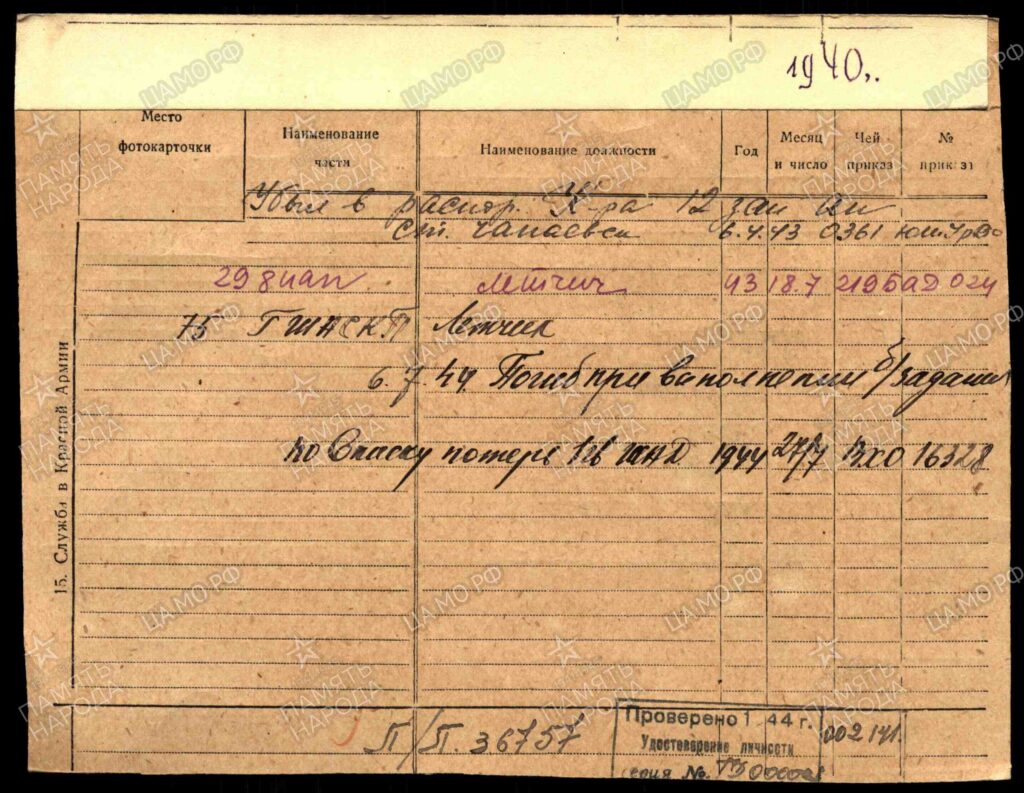 1940..
Место фотокарточки
Наименование части
Наименование должности
Год
Месяц и число
Чей приказ
№ приказа
Убыл в распор. К-ра 12 зап ап
ст. Чапаевск 6.4.43 0361
летчик 43 18.7 219 БАД 024
75 ГШАСКП Летчик
6.7.44 Погиб при выполнении б/задания
по списку потерь 1 гв ШАД 1944 27/7 Вхо 16328
15. Служба в Красной Армии
П/П. 36757
Проверено 1. 44 г.
002141.
Удостоверение личности
серия №
ЦАМО.РФ
ПАМЯТЬ НАРОДА